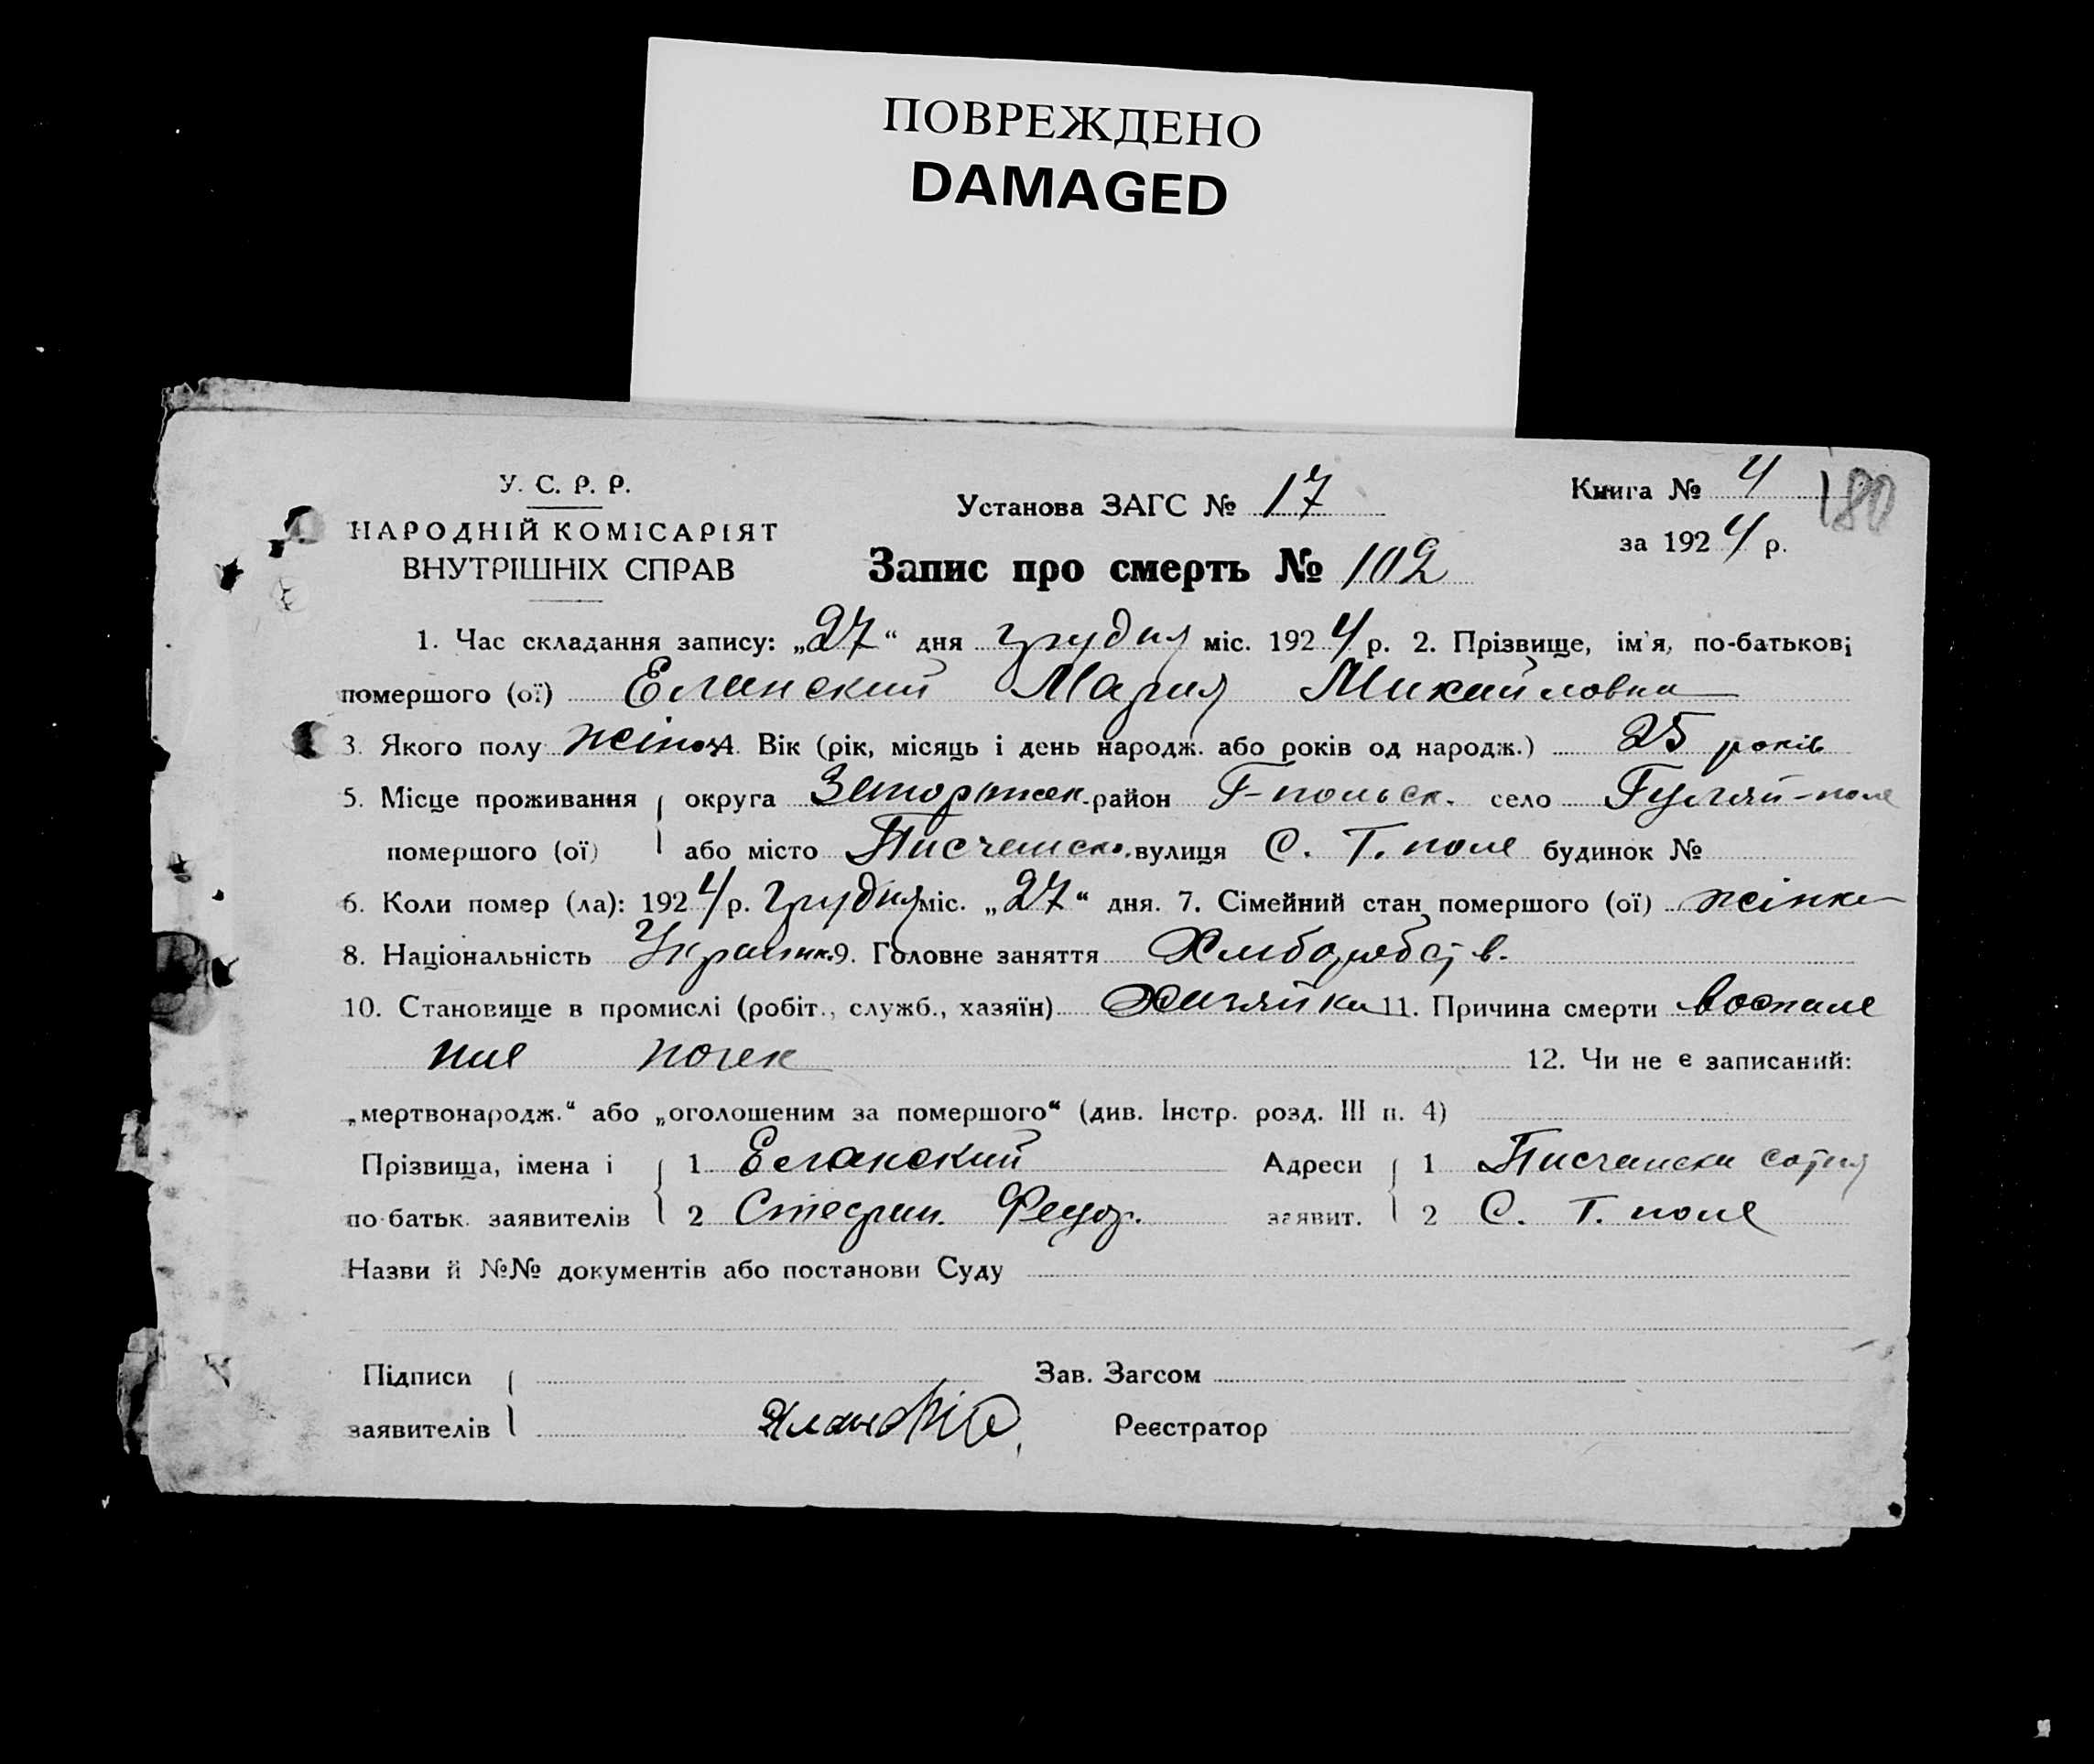 ПОВРЕЖДЕНО
DAMAGED
У. С. Р. Р.
НАРОДНІЙ КОМІСАРІЯТ
ВНУТРІШНІХ СПРАВ
Установа ЗАГС № 17
Книга № 4
180
за 1924 р.
Запис про смерть № 102
1. Час складання запису: „27“ дня грудня міс. 1924 р. 2. Прізвище, ім'я, по-батькові
помершого (ої) Еланский Мария Михайловна
3. Якого полу жіноч 4. Вік (рік, місяць і день народж. або років од народж.) 25 років
5. Місце проживання округа Запоріжск. район Г-польск. село Гуляй-поле
помершого (ої) або місто Писчанск. вулиця С. Г. поле будинок №
6. Коли помер (ла): 1924 р. Грудня міс. „27“ дня. 7. Сімейний стан помершого (ої) жінка
8. Національність Україн. 9. Головне заняття Хлиборобств.
10. Становище в промислі (робіт., служб., хазяїн) Хазяйка 11. Причина смерти воспале
ние почек 12. Чи не є записаний:
„мертвонародж.“ або „оголошеним за помершого“ (див. Інстр. розд. III п. 4)
Прізвища, імена і 1 Еланский Адреси 1 Писчански сотня
по-батьк. заявителів 2 Стефан. Федор. заявит. 2 С. Г. поле
Назви й №№ документів або постанови Суду
Підписи Зав. Загсом
заявителів Реєстратор